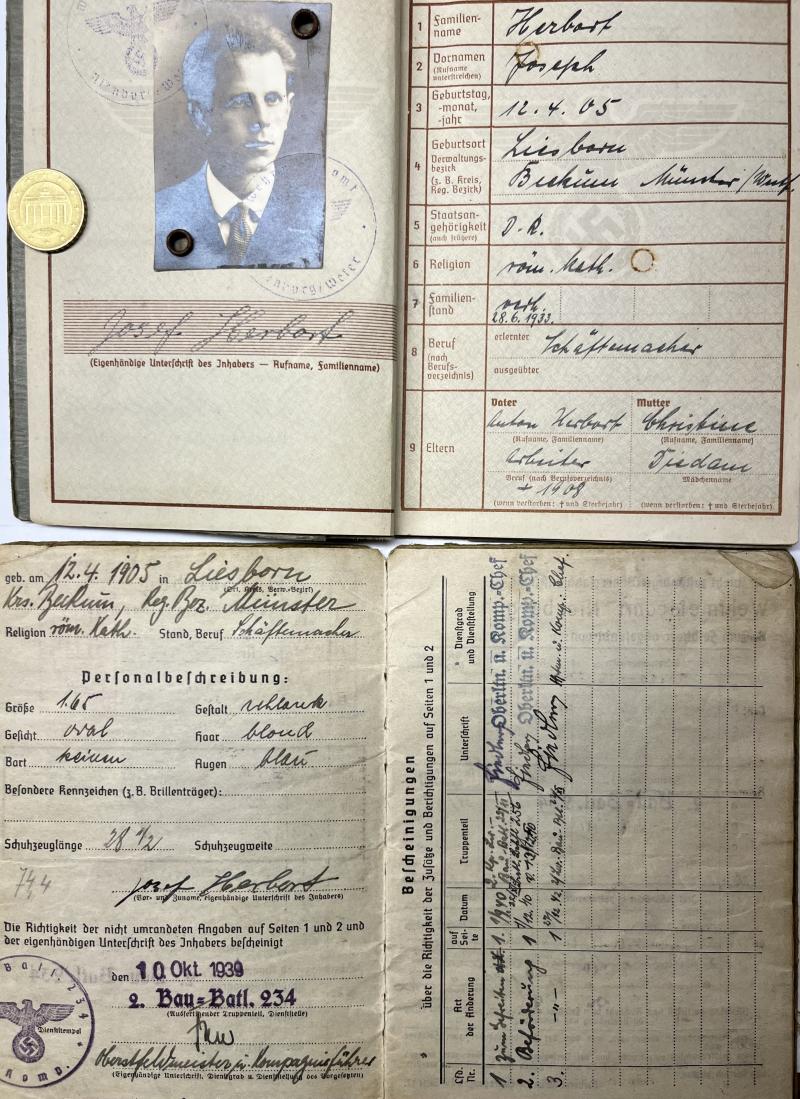 1 Familien-
name
Herbort
2 Vornamen
(Rufname
unterstreichen)
Joseph
3 Geburtstag,
-monat,
-jahr
12.4.05
4 Geburtsort
Verwaltungs-
bezirk
(z. B. Kreis,
Reg. Bezirk)
Liesborn
Beckum Münster/Westf.
5 Staatsan-
gehörigkeit
(auch frühere)
D.R.
6 Religion
röm. kath.
7 Familien-
stand
verh.
28.6.1933.
8 Beruf
(nach
Berufs-
verzeichnis)
erlernter Schäftemacher
ausgeübter
9 Eltern
Vater
Anton Herbort
(Rufname, Familienname)
Arbeiter
Beruf (nach Berufsverzeichnis)
+ 1908
(wenn verstorben: † und Sterbejahr)
Mutter
Christine
(Rufname, Familienname)
Tiedam
Mädchenname
(wenn verstorben: † und Sterbejahr)
Josef Herbort
(Eigenhändige Unterschrift des Inhabers — Rufname, Familienname)
geb. am 12.4.1905 in Liesborn
(Ort, Kreis, Verw.-Bezirk)
Krs. Beckum, Reg. Bez. Münster
Religion röm. kath. Stand, Beruf Schäftemacher
Personalbeschreibung:
Größe 1.65 Gestalt schlank
Gesicht oval Haar blond
Bart keinen Augen blau
Besondere Kennzeichen (z. B. Brillenträger):
Schuhzeuglänge 28 1/2 Schuhzeugweite
744
Josef Herbort
(Vor- und Zuname, eigenhändige Unterschrift des Inhabers)
Die Richtigkeit der nicht umrandeten Angaben auf Seiten 1 und 2
und der eigenhändigen Unterschrift des Inhabers bescheinigt
den 10. Okt. 1939
2. Bau=Batl. 234
(Ausfertigender Truppenteil, Dienststelle)
Dienststempel
Oberstfeldmeister u. Kompagnieführer
(Eigenhändige Unterschrift, Dienstgrad u. Dienststellung des Vorgesetzten)
Batl. 234
Komp.
Bescheinigungen
über die Richtigkeit der Zusätze und Berichtigungen auf Seiten 1 und 2
Lfd. Nr.
Art der Änderung
auf Sei-te
Datum
Truppenteil
Unterschrift
Dienstgrad und Dienststellung
1
zum Gefreiten
1.
Oberltn. u. Komp.-Chef
2. Beförderung
1
Oberltn. u. Komp.-Chef
3. -"-
1